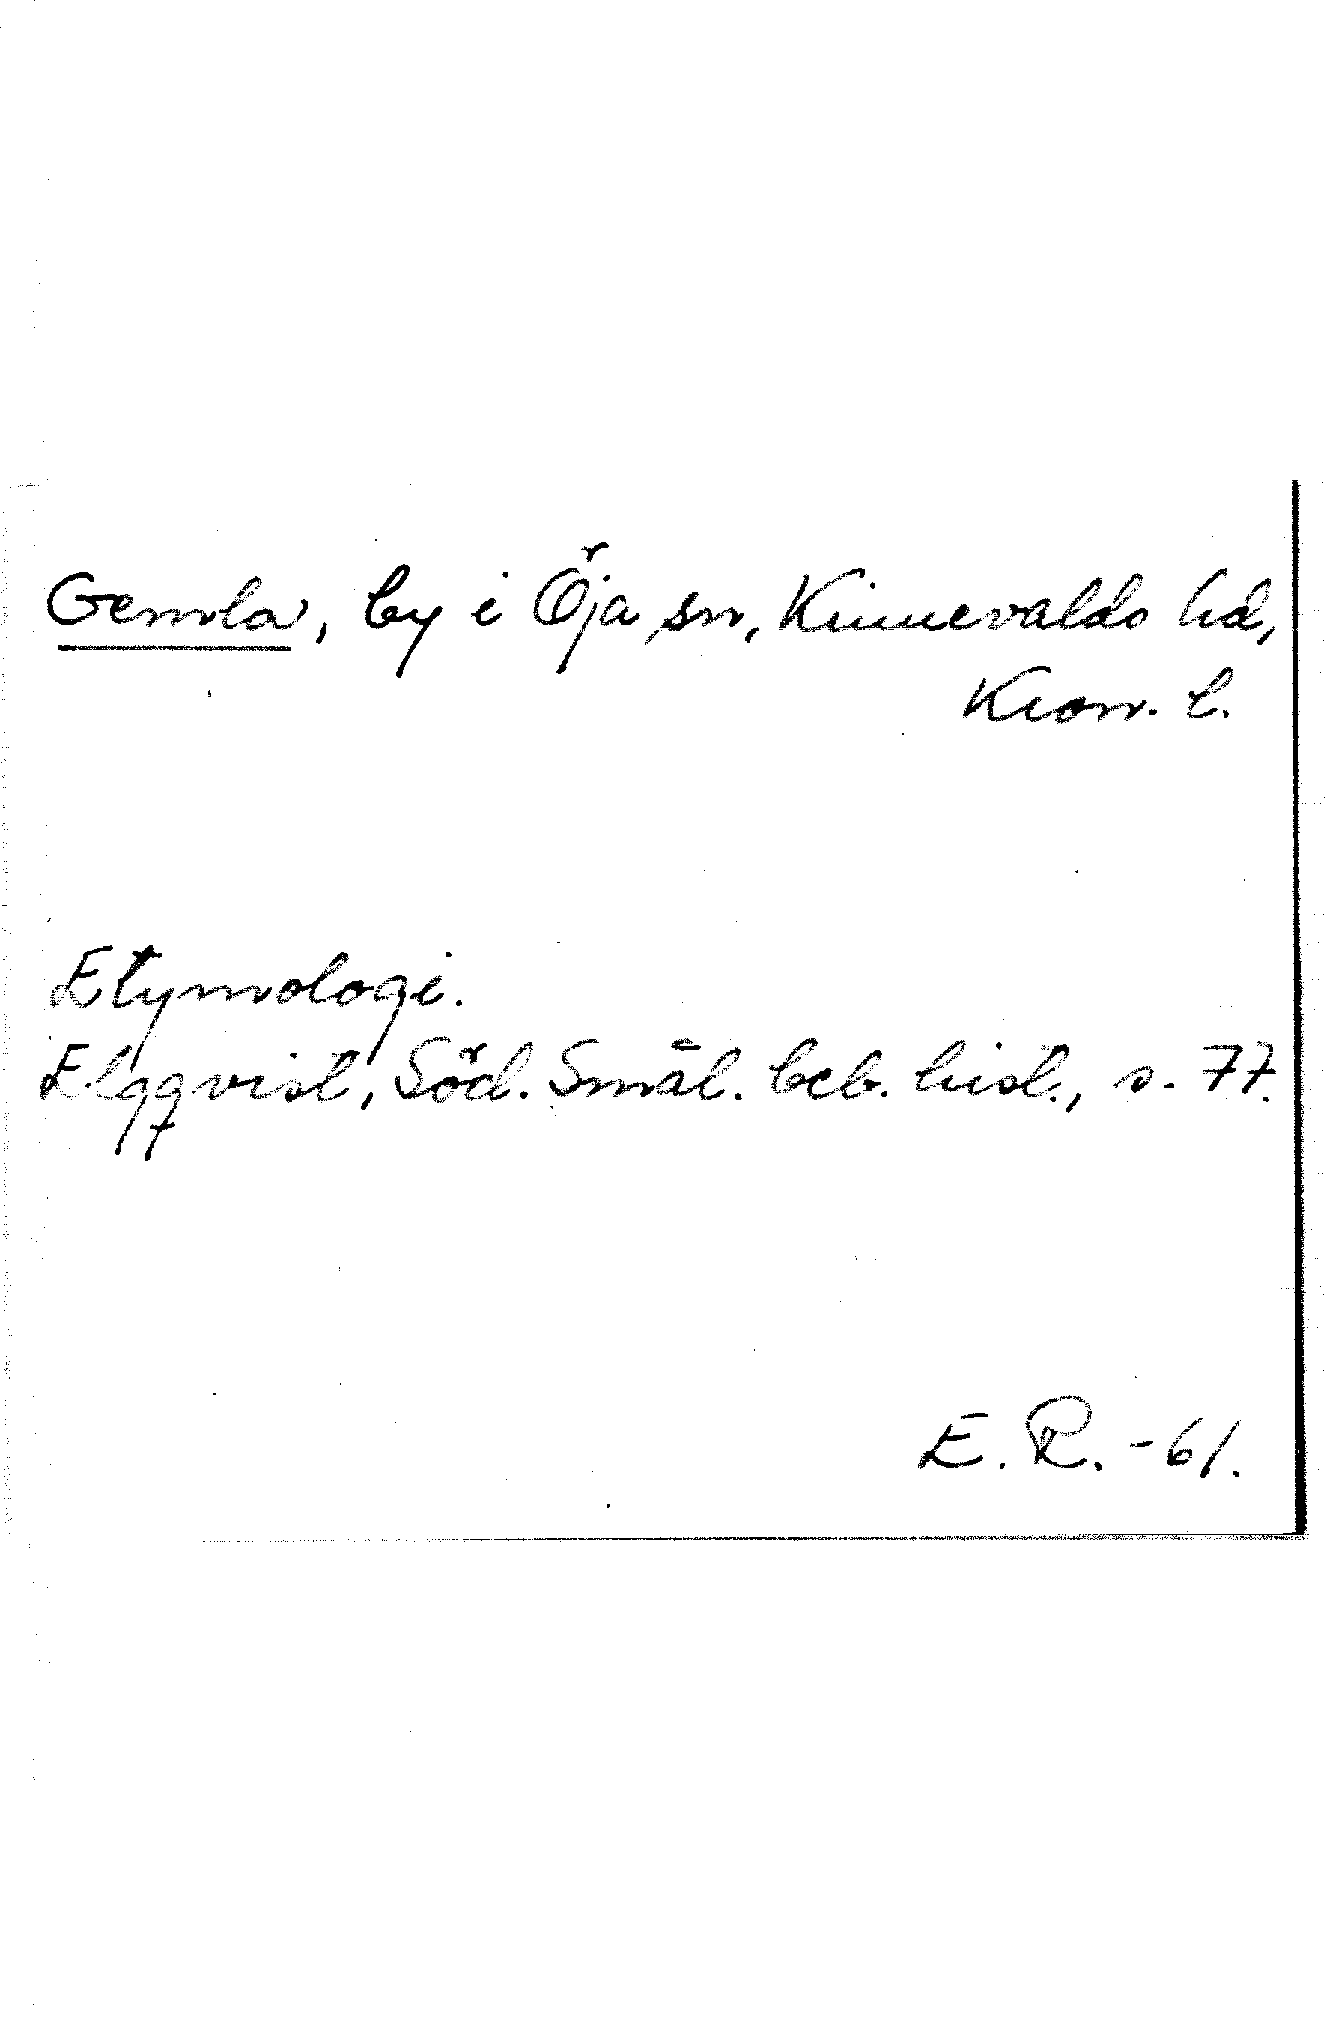 Gemla, by i Öja sn, Kinnevalds hd,
Kron. l.
Etymologi.
Elgqvist, Söd. Smål. beb. hist., s. 77.
E. R. -61.